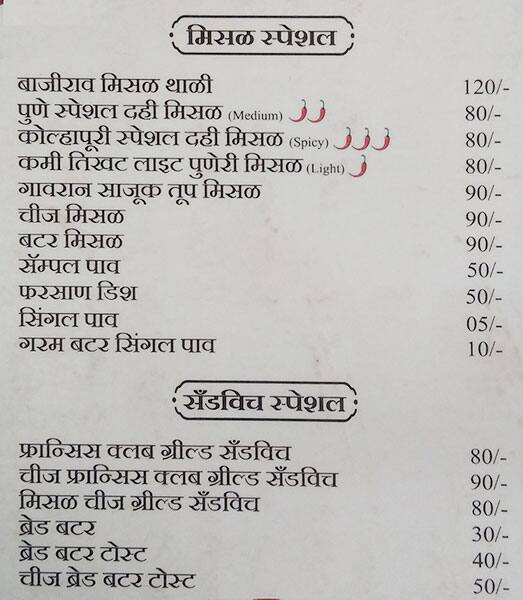 मिसळ स्पेशल
बाजीराव मिसळ थाळी 120/-
पुणे स्पेशल दही मिसळ (Medium) 80/-
कोल्हापूरी स्पेशल दही मिसळ (Spicy) 80/-
कमी तिखट लाइट पुणेरी मिसळ (Light) 80/-
गावरान साजूक तूप मिसळ 90/-
चीज मिसळ 90/-
बटर मिसळ 90/-
सॅम्पल पाव 50/-
फरसाण डिश 50/-
सिंगल पाव 05/-
गरम बटर सिंगल पाव 10/-
सँडविच स्पेशल
फ्रान्सिस क्लब ग्रील्ड सँडविच 80/-
चीज फ्रान्सिस क्लब ग्रील्ड सँडविच 90/-
मिसळ चीज ग्रील्ड सँडविच 80/-
ब्रेड बटर 30/-
ब्रेड बटर टोस्ट 40/-
चीज ब्रेड बटर टोस्ट 50/-